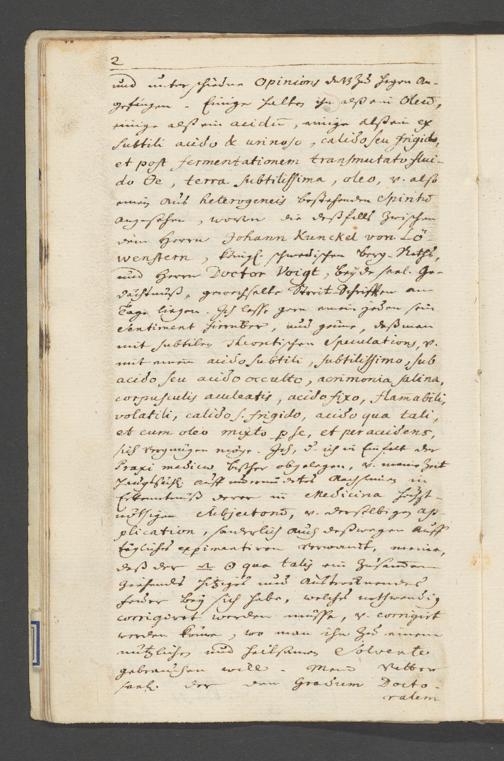 2
und unterschiedne Opinions daVon zu hegen An-
gefangen. Einige halten ihn alß ein Oleū,
einige alß ein acidū, einige alß ein ex
subtili acido & urinoso, calido seu frigido,
et post fermentationem transmutato flui-
do, terra subtilissima, oleo, v. also
einen auß heterogeneis bestehenden Spiritū
angesehen, worvon die deßfalls zwischen
dem Herrn Johann Kunckel von Lö-
wenstern, Königl. schwedischen Berg-Raths,
und Herrn Doctor Voigt, beyde seel. Ge-
dächtnuß, gewechselte Streit-Schrifften am
Tage liegen. Ich lasse gern einem jeden sein
Sentiment hierüber, und gönne, daß man
mit subtilen Theoretischen Speculations, v.
mit einem acido subtili, subtilissimo, sub
acido seu acido occulto, acrimonia salina,
corpusculis aculeatis, acido fixo, flamabili,
volatili, calido s. frigido, acido qua tali,
et cum oleo mixto p se, et per accidens,
sich vergnügen möge. Ich, d. ich in Einfalt der
Praxi medica, bißher obgelegen, v. meine Zeit
auff
Erkenntniß derer in Medicina höchst-
nöthigen Subjectorū, v. derselbigen ap-
plication, sonderlich auch deßwegen auff
tägliches experimentiren verwandt, meine,
daß der qua talis ein Zusammen-
hitziges und Austrocknendes
Feuer bey sich habe, welches nothwendig
corrigiret werden müsse, v. corrigirt
werden könne, wo man ihn zu einem
nützlichen und heilsamen Solvente
gebrauchen will. Mein Vetter
seel. der den Gradum Docto-
ralem